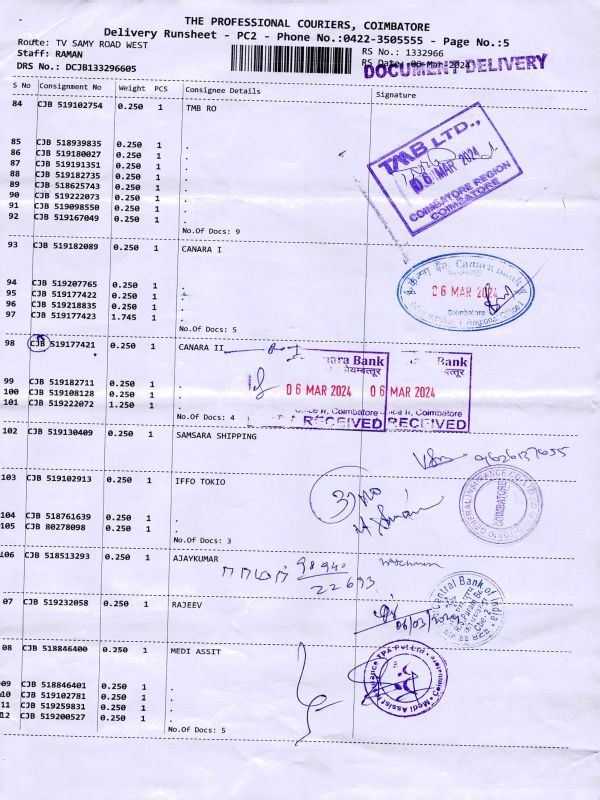 THE PROFESSIONAL COURIERS, COIMBATORE
Delivery Runsheet - PC2 - Phone No.:0422-3505555 - Page No.:5
Route: TV SAMY ROAD WEST
RS No.: 1332966
Staff: RAMAN
RS Date: 06-Mar-2024
DOCUMENT DELIVERY
DRS No.: DCJB133296605
S No Consignment No Weight PCS Consignee Details Signature
84 CJB 519102754 0.250 1 TMB RO
85 CJB 518939835 0.250 1 .
86 CJB 519180027 0.250 1 .
87 CJB 519191351 0.250 1 .
88 CJB 519182735 0.250 1 .
89 CJB 518625743 0.250 1 .
90 CJB 519222073 0.250 1 .
91 CJB 519098550 0.250 1 .
92 CJB 519167049 0.250 1 .
No.Of Docs: 9
TMB LTD.,
06 MAR 2024
COIMBATORE REGION
COIMBATORE
93 CJB 519182089 0.250 1 CANARA I
94 CJB 519207765 0.250 1 .
95 CJB 519177422 0.250 1 .
96 CJB 519218835 0.250 1 .
97 CJB 519177423 1.745 1 .
No.Of Docs: 5
Canara Bank
06 MAR 2024
Coimbatore
Regional Office
98 CJB 519177421 0.250 1 CANARA II
99 CJB 519182711 0.250 1 .
100 CJB 519108128 0.250 1 .
101 CJB 519222072 1.250 1 .
No.Of Docs: 4
nara Bank
कोयम्बत्तूर
06 MAR 2024
Coimbatore
RECEIVED
Bank
06 MAR 2024
II, Coimbatore
RECEIVED
102 CJB 519130409 0.250 1 SAMSARA SHIPPING
9626137655
103 CJB 519102913 0.250 1 IFFO TOKIO
104 CJB 518761639 0.250 1 .
105 CJB 80278098 0.250 1 .
No.Of Docs: 3
COIMBATORE
106 CJB 518513293 0.250 1 AJAYKUMAR
98940
22693
07 CJB 519232058 0.250 1 RAJEEV
06/03/2024
Central Bank of India
Cbe-2
08 CJB 518846400 0.250 1 MEDI ASSIT
09 CJB 518846401 0.250 1 .
10 CJB 519102781 0.250 1 .
11 CJB 519259831 0.250 1 .
12 CJB 519200527 0.250 1 .
No.Of Docs: 5
Medi Assist Insurance TPA Pvt Ltd